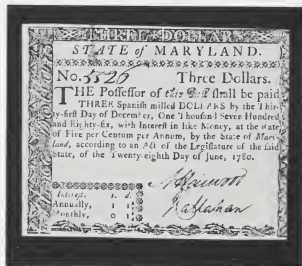 THREE DOLLARS.
STATE of MARYLAND.
No. 5526 Three Dollars.
THE Possessor of this Bill shall be paid
THREE Spanish milled DOLLARS by the Thir-
ty-first Day of December, One Thousand Seven Hundred
and Eighty-six, with Interest in like Money, at the Rate
of Five per Centum per Annum, by the State of Mary-
land, according to an Act of the Legislature of the said
State, of the Twenty-eighth Day of June, 1780.
Interest. s. d.
Annually, 1 1
Monthly, 0 1